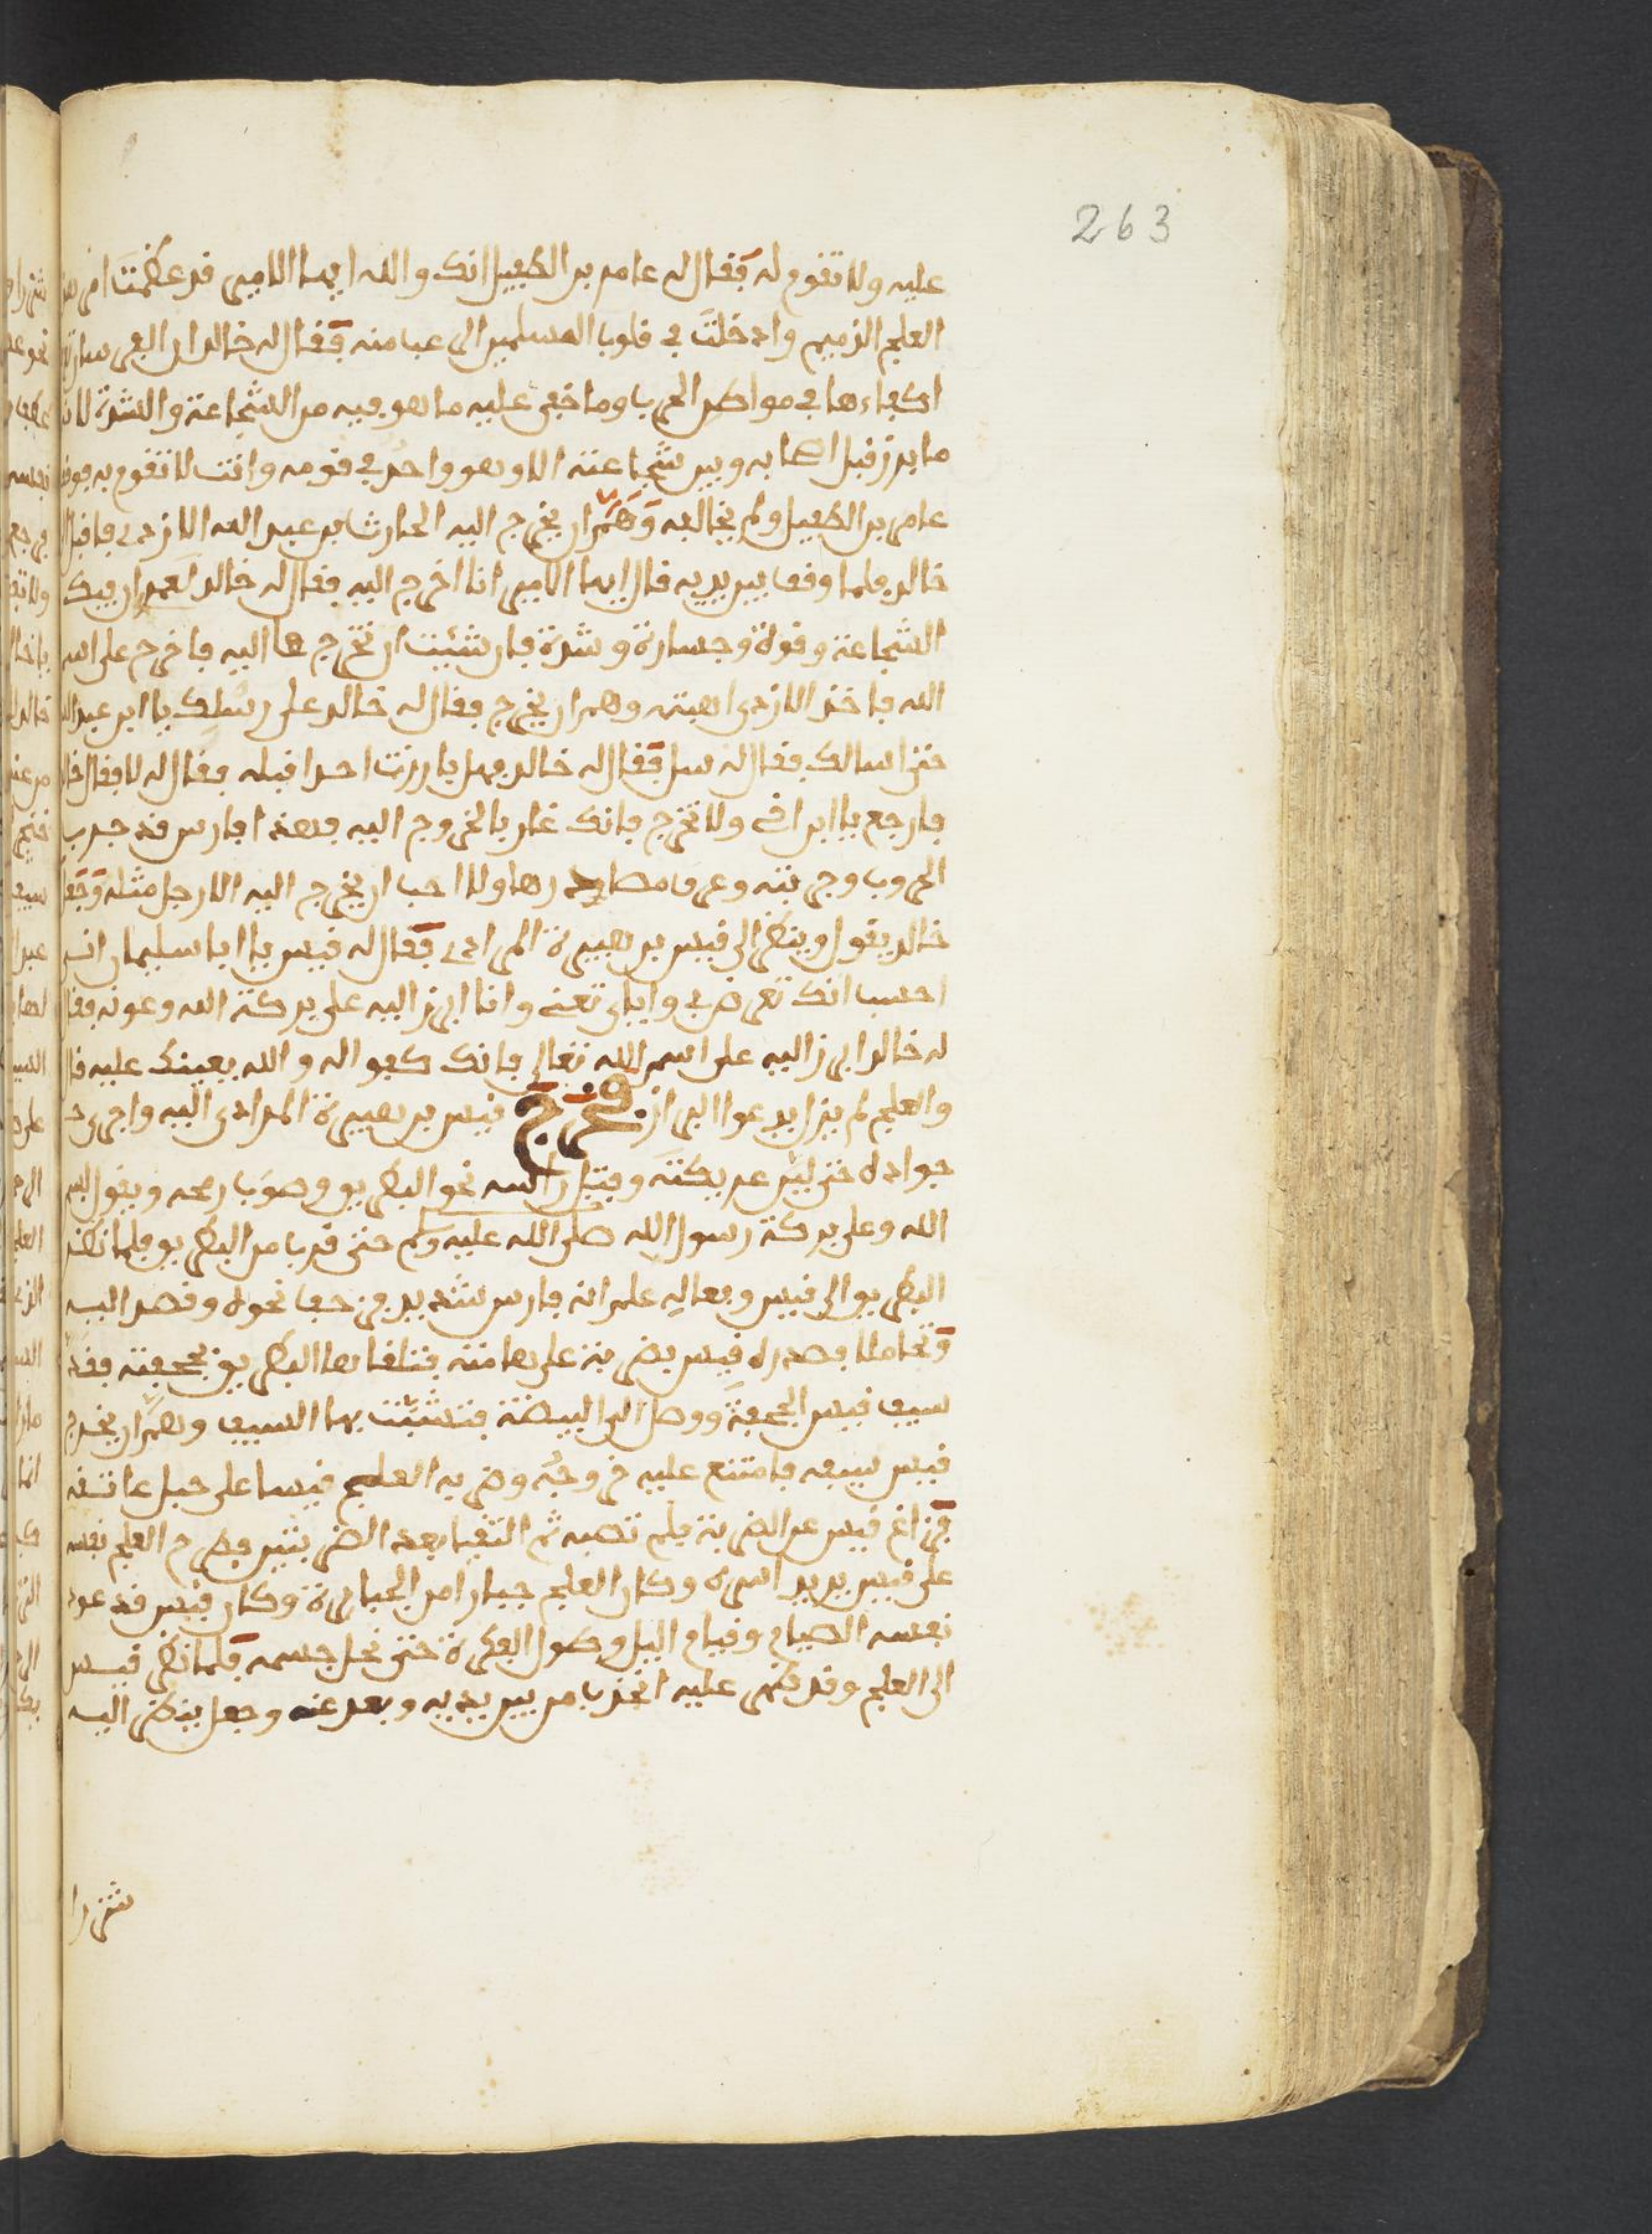 263
عليه ولا تقوم له فقال له عامر بن الطفيل انك والله ايها الامير قد عظمت امر هذا
العلج الذميم وادخلت في قلوب المسلمين الرعب منه فقال له خالد ان الفرسان
اكفاءها في مواطن الحرب وما خفي عليه ما هو فيه من الشجاعة والشدة لانه
ما برز قبل اصحابه وبين شجاعته الا وهو واحد في قومه وانت لا تقوم به فوقف
عامر بن الطفيل ولم يخالفه وهم ان يخرج اليه الحارث بن عبد الله الازدي فاقبل
خالد فلما وقف بين يديه قال ايها الامير انا اخرج اليه فقال له خالد لعمر ان فيك
الشجاعة وقوة وجسارة وشدة فان شئت ان تخرج ها اليه فاخرج على اسم
الله فاخذ الازدي اهبته وهم ان يخرج فقال له خالد على رسلك يا ابن عبد الله
حتى اسالك فقال له سل فقال له خالد فهل بارزت احدا قبله فقال له لا فقال خالد
فارجع يا ابن اخي ولا تخرج فانك غار بالخروج اليه فهذا فارس قد جرب
الحروب وجربته وعرف مصادرها ولا احب ان يخرج اليه الا رجل مثله وجعل
خالد يقول وينظر الى قيس بن هبيرة المرادي فقال له قيس يا ابا سليمان اني
احسب انك تعرض بي واياي تعني وانا ابرز اليه على بركة الله وعونه فقال
له خالد ابرز اليه على اسم الله تعالى فانك كفوا له والله يعينك عليه قال
والعلج لم يزل يدعوا البراز فخرج قيس بن هبيرة المرادي اليه واجرى
جواده حتى لين عريكته وقبل راسه نحو البطريق وصوب رمحه ويقول بسم
الله وعلى بركة رسول الله صلى الله عليه وسلم حتى قرب من البطريق فلما نظر
البطريق الى قيس وفعاله علم انه فارس شديد فزحف نحوه وقصد اليه
وتحاملا فبدره قيس بضربة على هامته فتلقاها البطريق بحجفته فقد
سيف قيس الحجفة ووصل الى البيضة فتشبت بها السيف وهم ان يخرج
قيس سيفه فامتنع عليه خروجه وضربه العلج قيسا على حبل عاتقه
فزاغ قيس عن الضربة فلم تصبه ثم التقيا بعد الضربتين فطرح العلج نفسه
على قيس يريد اسره وكان العلج جبارا من الجبابرة وكان قيس قد عود
نفسه الصيام وقيام الليل وطول الفكرة حتى نحل جسمه فلما نظر قيس
الى العلج وقد قهر عليه انجذب من بين يديه وبعد عنه وجعل ينظر اليه
شزرا